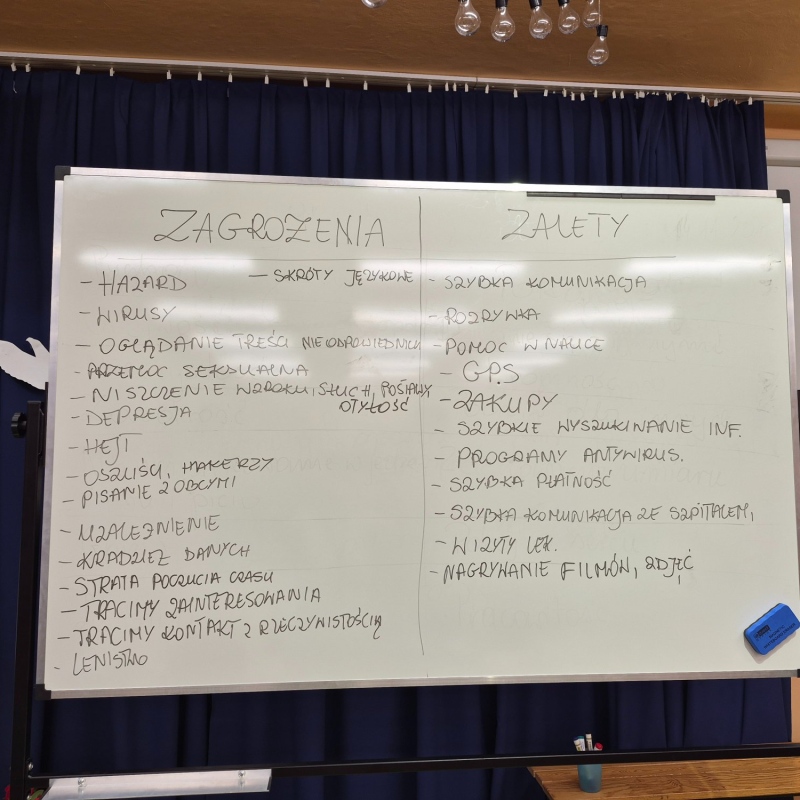 ZAGROŻENIA
- HAZARD
- SKRÓTY JĘZYKOWE
- WIRUSY
- OGLĄDANIE TREŚCI NIEODPOWIEDNICH
- PRZEMOC SEKSUALNA
- NISZCZENIE WZROKU, SŁUCH, POSTAWY
OTYŁOŚĆ
- DEPRESJA
- HEJT
- OSZUŚCI, HAKERZY
- PISANIE Z OBCYMI
- UZALEŻNIENIE
- KRADZIEŻ DANYCH
- STRATA POCZUCIA CZASU
- TRACIMY ZAINTERESOWANIA
- TRACIMY KONTAKT Z RZECZYWISTOŚCIĄ
- LENISTWO
ZALETY
- SZYBKA KOMUNIKACJA
- ROZRYWKA
- POMOC W NAUCE
- GPS
- ZAKUPY
- SZYBKIE WYSZUKIWANIE INF.
- PROGRAMY ANTYWIRUS.
- SZYBKA PŁATNOŚĆ
- SZYBKA KOMUNIKACJA ZE SZPITALEM,
- WIZYTY LEK.
- NAGRYWANIE FILMÓW, ZDJĘĆ